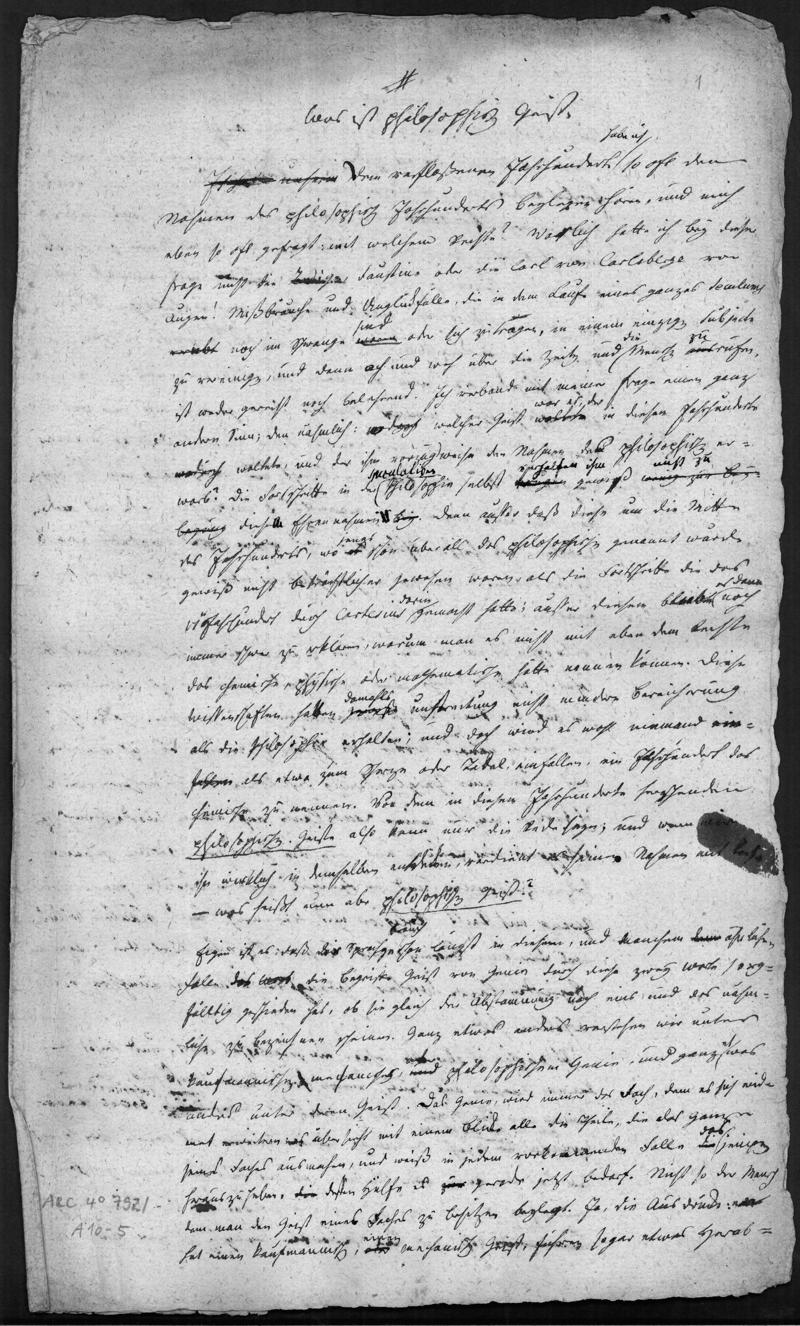 1
Was ist philosophischer Geist.
habe ich
dem verflossenen Jahrhunderte so oft den
Nahmen des philosophischen Jahrhunderts beylegen hören, und mich
eben so oft gefragt: mit welchem Rechte? Warlich hatte ich bey dieser
Frage nicht die Faustine oder die Carl von Carlsberge vor
Augen! Mißbräuche und Unglücksfälle, die in dem Laufe eines ganzen Seculums
sind
noch im Schwange oder sich zutragen, in einem einzigen Subjecte
die zu
zu vereinigen, und dann ach und weh über die Zeiten und Menschen rufen,
ist weder gerecht noch belehrend. Ich verband mit meiner Frage einen ganz
war es, der
andern Sinn; den nähmlich: welcher Geist in diesem Jahrhunderte
waltete, und der ihm vorzugsweise den Nahmen des philosophischen er=
speculativen verhalfen ihm nicht zu
warb? Die Fortschritte in der Philosophie selbst gewiß
diesem Ehrennahmen. Denn außer daß diese um die Mitte
des Jahrhunderts, wo es schon überall das philosophische genannt wurde
gewiß nicht beträchtlicher gewesen waren, als die Fortschritte die das
darin es dann
17te Jahrhundert durch Cartesius gemacht hatte; außer diesem noch
immer schwer zu erklären, warum man es nicht mit eben dem Rechte
das chemische, physische oder mathematische hätte nennen können. Diese
damahls
Wissenschaften hatten unstreitig nicht mindere Bereicherung
als die Philosophie erhalten; und doch wird es wohl niemand
als etwa zum Scherze oder Tadel, einfallen, ein Jahrhundert das
chemische zu nennen. Von dem in diesem Jahrhunderte herrschenden
philosophischen Geiste also kann nur die Rede seyn; und wenn
ihn wirklich in demselben, verdient es seinen Nahmen mit Recht
— was heißt nun aber philosophischer Geist?
Eigen ist es: daß der Sprachgebrauch schon längst in diesem, und manchem ähnlichen
Falle die Begriffe Geist von Genie durch diese zwey Worte sorg=
fältig geschieden hat, ob sie gleich der Abstammung nach eins und das nähm=
liche zu bezeichnen scheinen. Ganz etwas anders verstehen wir unter
kaufmännischen, mechanischen, philosophischem Genie, und ganz etwas
anders unter deren Geist. Das Genie, wird immer das Fach, dem es sich wid=
met übersieht mit einem Blicke alle die Theile, die das Ganze
das
seines Faches ausmachen, und weiß in jedem vorkommenden Falle jenige
herauszuheben, dessen Hülfe es gerade jetzt bedarf. Nicht so der Mensch
dem man den Geist eines Faches zu besitzen beylegt. Ja, die Ausdrücke: er
einen
hat einen kaufmännischen, mechanischen Geist, führen sogar etwas Herab=
ARC. 4° 792/
A10-5